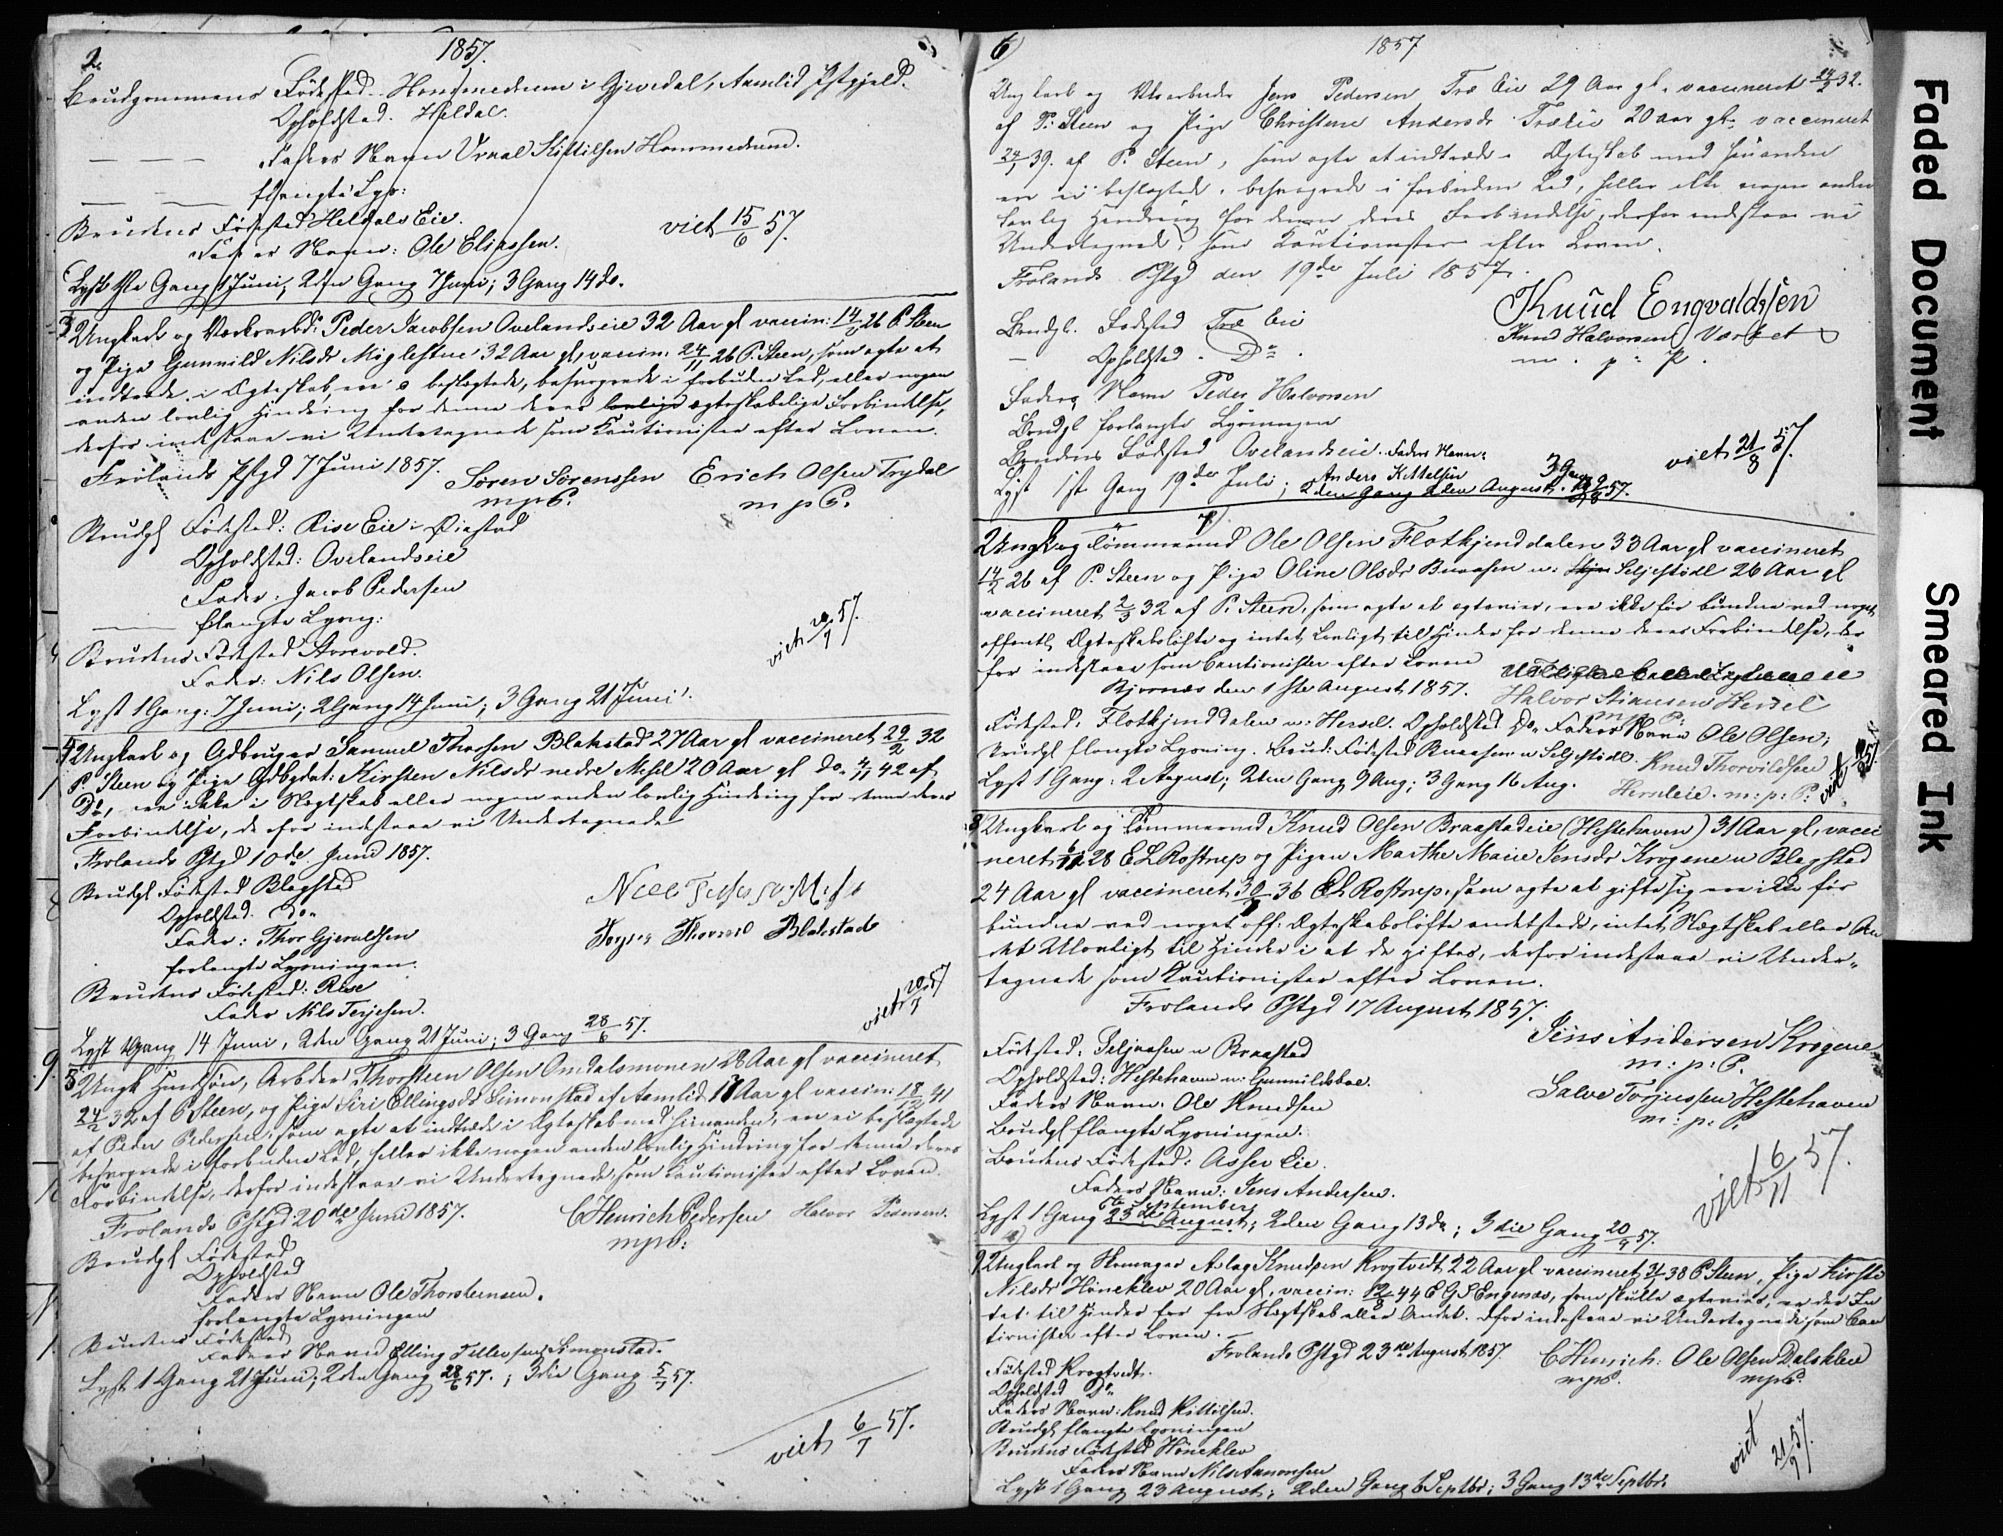 2.
1857.
Brudgommens Fødested. Hommedrum i Gjevedal, Aamlid Pstgjeld.
Opholdsted. Heldal.
— — — Faders Navn Vraal Kittilsen Hommedrum.
— — — flangte Lys:
Brudens Fødested Heldals Eie. viet 15/6 57.
Faders Navn: Ole Eliassen.
Lyst 1ste Gang 1 Juni; 2den Gang 7 Juni; 3 Gang 14 do.
3 Ungkarl og Værksarbd: Peder Jacobsen Ovelandseie 32 Aar gl vaccin: 14/ 26 P. Steen
og Pige Gunnild Nilsdr Møglestue 32 Aar gl, vaccin. 24/11 26 P. Steen, som agte at
indtræde i Ægteskab, ere ei beslægtede, besvogrede i forbuden Led, eller nogen
anden lovlig Hindring for denne deres lovlige ægteskabelige Forbindelse,
derfor indestaae vi Undertegnede som Kautionister efter Loven.
Frolands Pstgd 7 Juni 1857. Søren Sørenssen Erich Olsen Trydal
mpP. m p P.
Brudgl Fødested: Rise Eie i Øiestad
Opholdsted: Ovelandseie
Fader: Jacob Pedersen
— flangte Lysng: viet 20/7 57.
Brudens Fødested Aasevold.
Fader: Nils Olsen.
Lyst 1 Gang: 7 Juni; 2 Gang 14 Juni; 3 Gang 21 Juni.
4 Ungkarl og Gdbruger Samuel Thorsen Blakstad 27 Aar gl vaccineret 29/2 32
P. Steen og Pige Gdbgdat: Kirsten Nilsdr nedre Mesel 20 Aar gl do. 4/11 42 af
Do, ere ikke i Slægtskab eller nogen anden lovlig Hindring for denne deres
Forbindelse, derfor indestaae vi Undertegnede
Frolands Pstgd 10de Juni 1857.
Brudgl Fødested Blagstad
Opholdsted. Do.
Fader: Thor Gjeruldsen Blakstad
forlangte Lysningen.
Brudens Fødested: Rise viet 20/7 57
Fader Nils Terjesen.
Lyst 1 Gang 14 Juni, 2den Gang 21 Juni; 3 Gang 28/6 57.
5 Ungk Huusfon, Arbdr Thorsteen Olsen Omdalsmonen 28 Aar gl vaccineret
24/2 32 af P Steen, og Pige Siri Ellingsdr Simonstad af Aamlid 17 Aar gl vaccin: 18/12 41
af Peder Pedersen, som agte at indtræde i Ægteskab med hinanden, ere ei beslægtede
besvogrede i forbuden Led, heller ikke nogen anden lovlig Hindring for denne deres
Forbindelse, derfor indestaae vi Undertegnede, som Kautionister efter Loven.
Frolands Pstgd 20de Juni 1857. C Henrich Pedersen Halvor Pedersen.
mpP:
Brudgl Fødested
Opholdsted
Faders Navn Ole Thorsteensen.
forlangte Lysningen
Brudens Fødested
Faders Navn Elling Tellefsen Simonstad.
Lyst 1 Gang 21 Juni; 2den Gang 28/6 57.; 3die Gang 5/7 57.
viet 6/7 57.
6
1857
Ungkarl og Jens Pedersen Træ Eie 29 Aar gl. vaccineret 24/2 32.
af P. Steen og Pige Christene Andersdr Træeie 20 aar gl. vaccineret
24/ 39. af P. Steen, som agte at indtræde i Ægteskab med hinanden
ere ei beslægtede, besvogrede i forbuden Led, heller ikke nogen anden
lovlig Hindring for denne deres Forbindelse, derfor indestaae vi
Undertegnede, som Kautionister efter Loven.
Frolands Pstgd den 19de Juli 1857.
Knud Engvaldssen
Brudgl. Fødested Træ Eie Knud Halvorsen Værket
— Opholdsted. Do. m. p: P.
Faders Navn Peder Halvorsen
Brudgl forlangte Lysningen
Brudens Fødested Ovelandseie. Faders Navn: viet 21/8 57.
Anders Kittelsen
Lyst 1ste Gang 19de Juli; 2den Gang 2den August. 3 Gang 9/8 57.
Ungk og Tømmermd Ole Olsen Flotkjenddalen 33 Aar gl vaccineret
14/2 26 af P. Steen og Pige Oline Olsdr Buaasen u: Seljestødl 26 Aar gl
vaccineret 2/3 32 af P. Steen, som agte at ægtevies, ere ikke før bundne ved noget
offentl Ægteskabsløfte og intet Lovligt til Hinder for denne deres Forbindelse, der
for indestaae som Cautionister efter Loven
Bjornæs den 1ste August 1857. Halvor Stiansen Hersel
m. P:
Fødested, Flotkjenddalen u: Hersel. Opholdsted Do. Faders Navn Ole Olsen;
Brudgl flangte Lysning. Brud: Fødested Buaasen u Seljestødl. Knud Thorvildsen
Lyst 1 Gang. 2 August; 2den Gang 9 Aug; 3 Gang 16 Aug. Herseleie. m: p: P: viet
8 Ungkarl og Tømmermd Knud Olsen Braastadeie (Hestehaven) 31 Aar gl, vacci
neret 28 E L Rostrup og Pigen Marthe Marie Jensdr Krogene u Blagstad
24 Aar gl vaccineret 30/ 36 E L Rostrup, som agte at gifte sig ere ikke før
bundne ved noget off: Ægteskabsløfte andetsteds, intet Slægtskab eller An
det Ulovligt til Hinder i at de giftes, derfor indestaae vi Under-
tegnede som Kautionister efter Loven.
Frolands Pstgd 17 August 1857.
Jens Andersen Krogene
m: p: P.
Fødested: Seljaasen u Braastad
Opholdsted: Hestehaven u: Gunnildsboe. Salve Torjussen Hestehaven
Faders Navn. Ole Knudsen m: p: P.
Brudgl flangte Lysningen.
Brudens Fødested: Asser Eie. viet 6/11 57.
Faders Navn: Jens Andersen.
6te September
Lyst 1 Gang 23de August; 2den Gang 13de; 3die Gang 20/9 57.
9 Ungkarl og Skomager Aslag Knudsen Krogtvedt 22 Aar gl vaccineret 38 P Steen, Pige Kirsti
Nilsdr Höneklev 20 Aar gl, vaccin: 12/8 44 E G S Engenæs, som skulle ægtevies, er der In
tet til Hinder for for Slægtskab eller Andet. Dfor indestaae vi Undertegnede som Cau
tionister efter Loven.
Frolands Pstgd 23de August 1857. C Henrich: Ole Olsen Dalsklev
mpP. mpP.
Fødested Krogtvedt.
Opholdsted Do.
Faders Navn: Knud Kittilsen.
Brudgl flangte Lysningen
Brudens Fødested Höneklev
Faders Navn Nils Aanonsen viet 21/9 57.
Lyst 1 Gang 23 August; 2den Gang 6 Septbr; 3 Gang 13de Septbr.
Faded Document
Smeared Ink